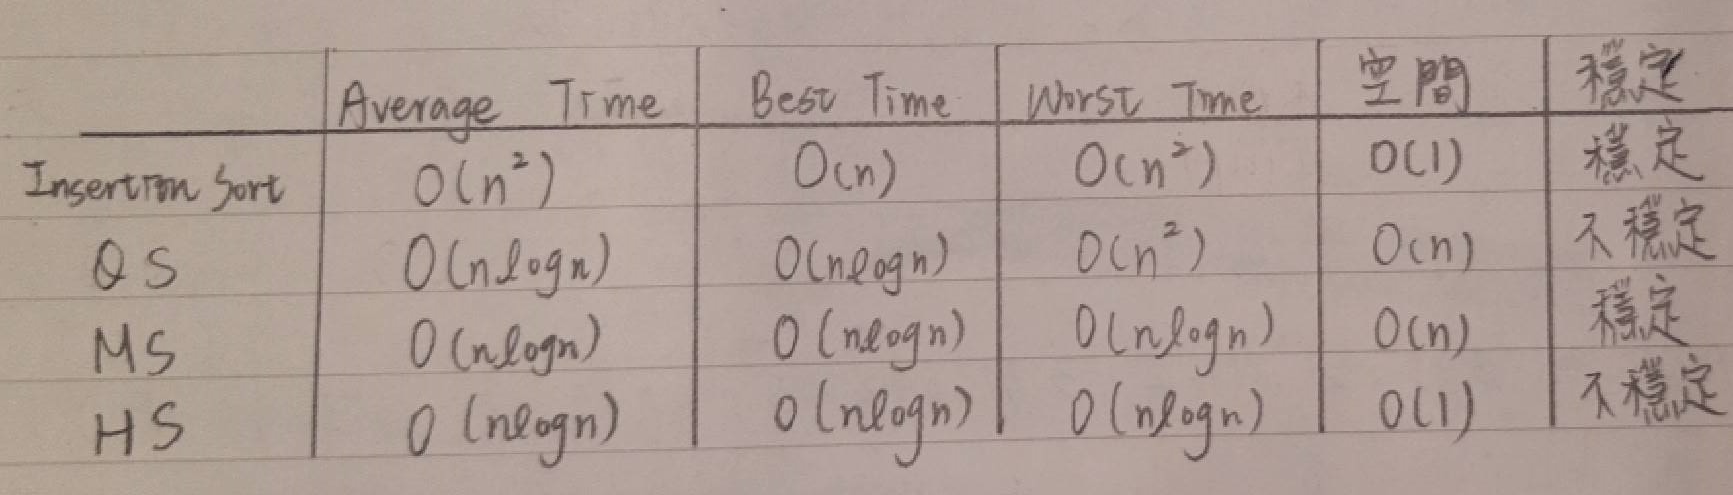 Average Time Best Time Worst Time 空間 穩定
Insertion Sort O(n²) O(n) O(n²) O(1) 穩定
QS O(nlogn) O(nlogn) O(n²) O(n) 不穩定
MS O(nlogn) O(nlogn) O(nlogn) O(n) 穩定
HS O(nlogn) O(nlogn) O(nlogn) O(1) 不穩定